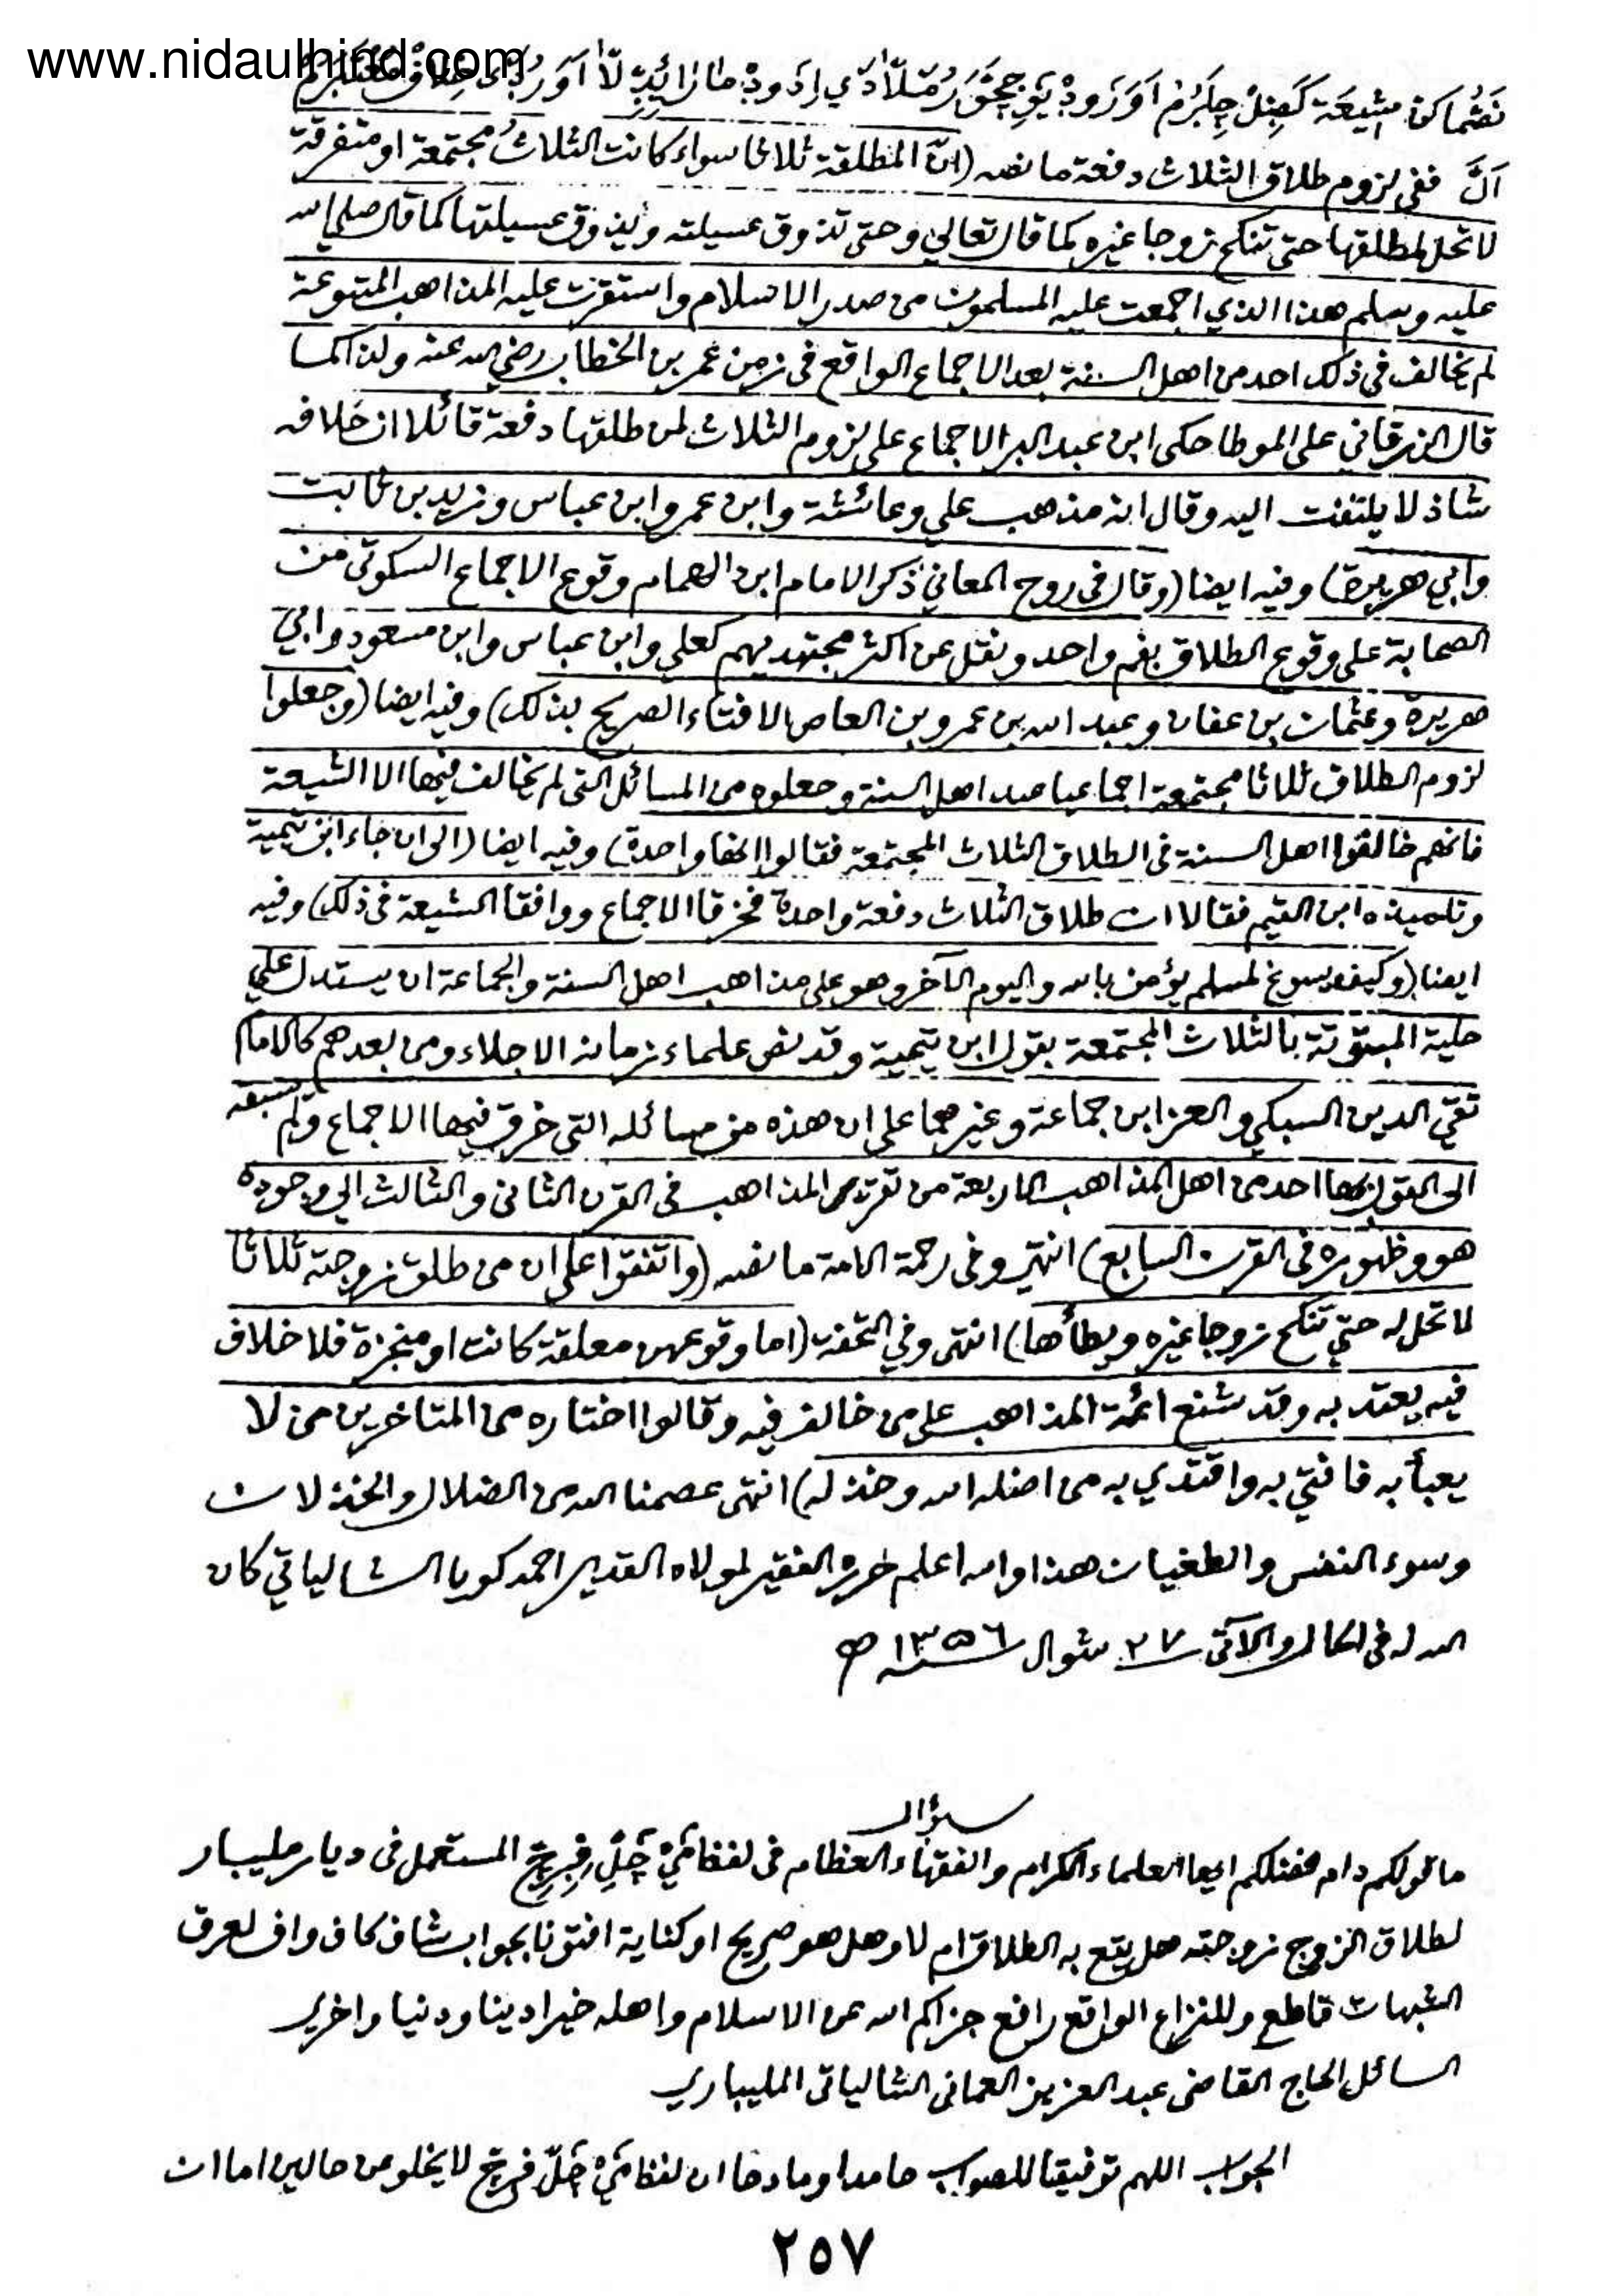 www.nidaulhind.com
اَنَّ ففى لزوم طلاق الثلاث دفعة ما نصه (انّ المطلقة ثلاثا سواء كانت الثلاثُ مجتمعة او متفرقة
لا تحل لمطلقها حتى تنكح زوجا غيره كما قال تعالى وحتى تذوق عسيلته ويذوق عسيلتها كما قال صلى الله
عليه وسلم هذا الذي اجمعت عليه المسلمون من صدر الاسلام واستقرت عليه المذاهب المتبوعة
لم يخالف فى ذلك احد من اهل السنة بعد الاجماع الواقع فى زمن عمر بن الخطاب رضي الله عنه ولذا كما
قال الزرقاني على الموطا حكى ابن عبد البر الاجماع على لزوم الثلاث لمن طلقها دفعة قائلا ان خلافه
شاذ لا يلتفت اليه وقال انه مذهب علي وعائشة وابن عمر وابن عباس وزيد بن ثابت
وابي هريرة) وفيه ايضا (وقال فى روح المعاني ذكر الامام ابن الهمام وقوع الاجماع السكوتى من
الصحابة على وقوع الطلاق بفم واحد ونقل عن اكثر مجتهديهم كعلي وابن عباس وابن مسعود وابي
هريرة وعثمان بن عفان وعبد الله بن عمرو بن العاص الافتاء الصريح بذلك) وفيه ايضا (وجعلوا
لزوم الطلاق ثلاثا مجتمعة اجماعيا صد اهل السنة وجعلوه من المسائل التى لم يخالف فيها الا الشيعة
فانهم خالفوا اهل السنة فى الطلاق الثلاث المجتمعة فقالوا انها واحدة) وفيه ايضا (الى ان جاء ابن تيمية
وتلميذه ابن القيم فقالا ان طلاق الثلاث دفعة واحدة فخرقا الاجماع ووافقا الشيعة فى ذلك) وفيه
ايضا (وكيف يسوغ لمسلم يؤمن بالله واليوم الآخر وهو على مذاهب اهل السنة والجماعة ان يستدل على
حلية المبتوتة بالثلاث المجتمعة بقول ابن تيمية وقد نص علماء زمانه الاجلاء ومن بعدهم كالامام
تقي الدين السبكي والعز ابن جماعة وغيرهما على ان هذه من مسائله التى خرق فيها الاجماع ولم يسبقه
الى القول بها احد من اهل المذاهب الاربعة من تقرير المذاهب فى القرن الثانى والثالث الي وجوده
هو وظهوره فى القرن السابع) انتهى وفى رحمة الامة ما نصه (واتفقوا على ان من طلق زوجته ثلاثا
لا تحل له حتي تنكح زوجا غيره ويطأها) انتهى وفي التحفة (اما وقوعهن معلقة كانت او منجزة فلا خلاف
فيه يعتد به وقد شنع ائمة المذاهب على من خالف فيه وقالوا اختاره من المتاخرين من لا
يعبأ به فافتي به واقتدي به من اضله الله وخذله) انتهى عصمنا الله من الضلال والخذلان
وسوء النفس والطغيان هذا والله اعلم حرره الفقير لمولاه القدير احمد كويا الشالياتي كان
الله له فى الحال والآتى ٢٧ شوال سنة ١٣٥٦ ھ
سؤال
ما قولكم دام فضلكم ايها العلماء الكرام والفقهاء العظام فى لفظ المستعمل فى ديار مليبار
لطلاق الزوج زوجته هل يقع به الطلاق ام لا وهل هو صريح او كناية افتونا بجواب شاف كاف واف لعرق
الشبهات قاطع وللنزاع الواقع رافع جزاكم الله عن الاسلام واهله خيرا دينا ودنيا واخرى
السائل الحاج القاضى عبد العزيز العمانى الشالياتى المليباري
الجواب اللهم توفيقا للصواب حامدا وما دحا ان لفظ لا يخلو من حالين اما ان
٢٥٧